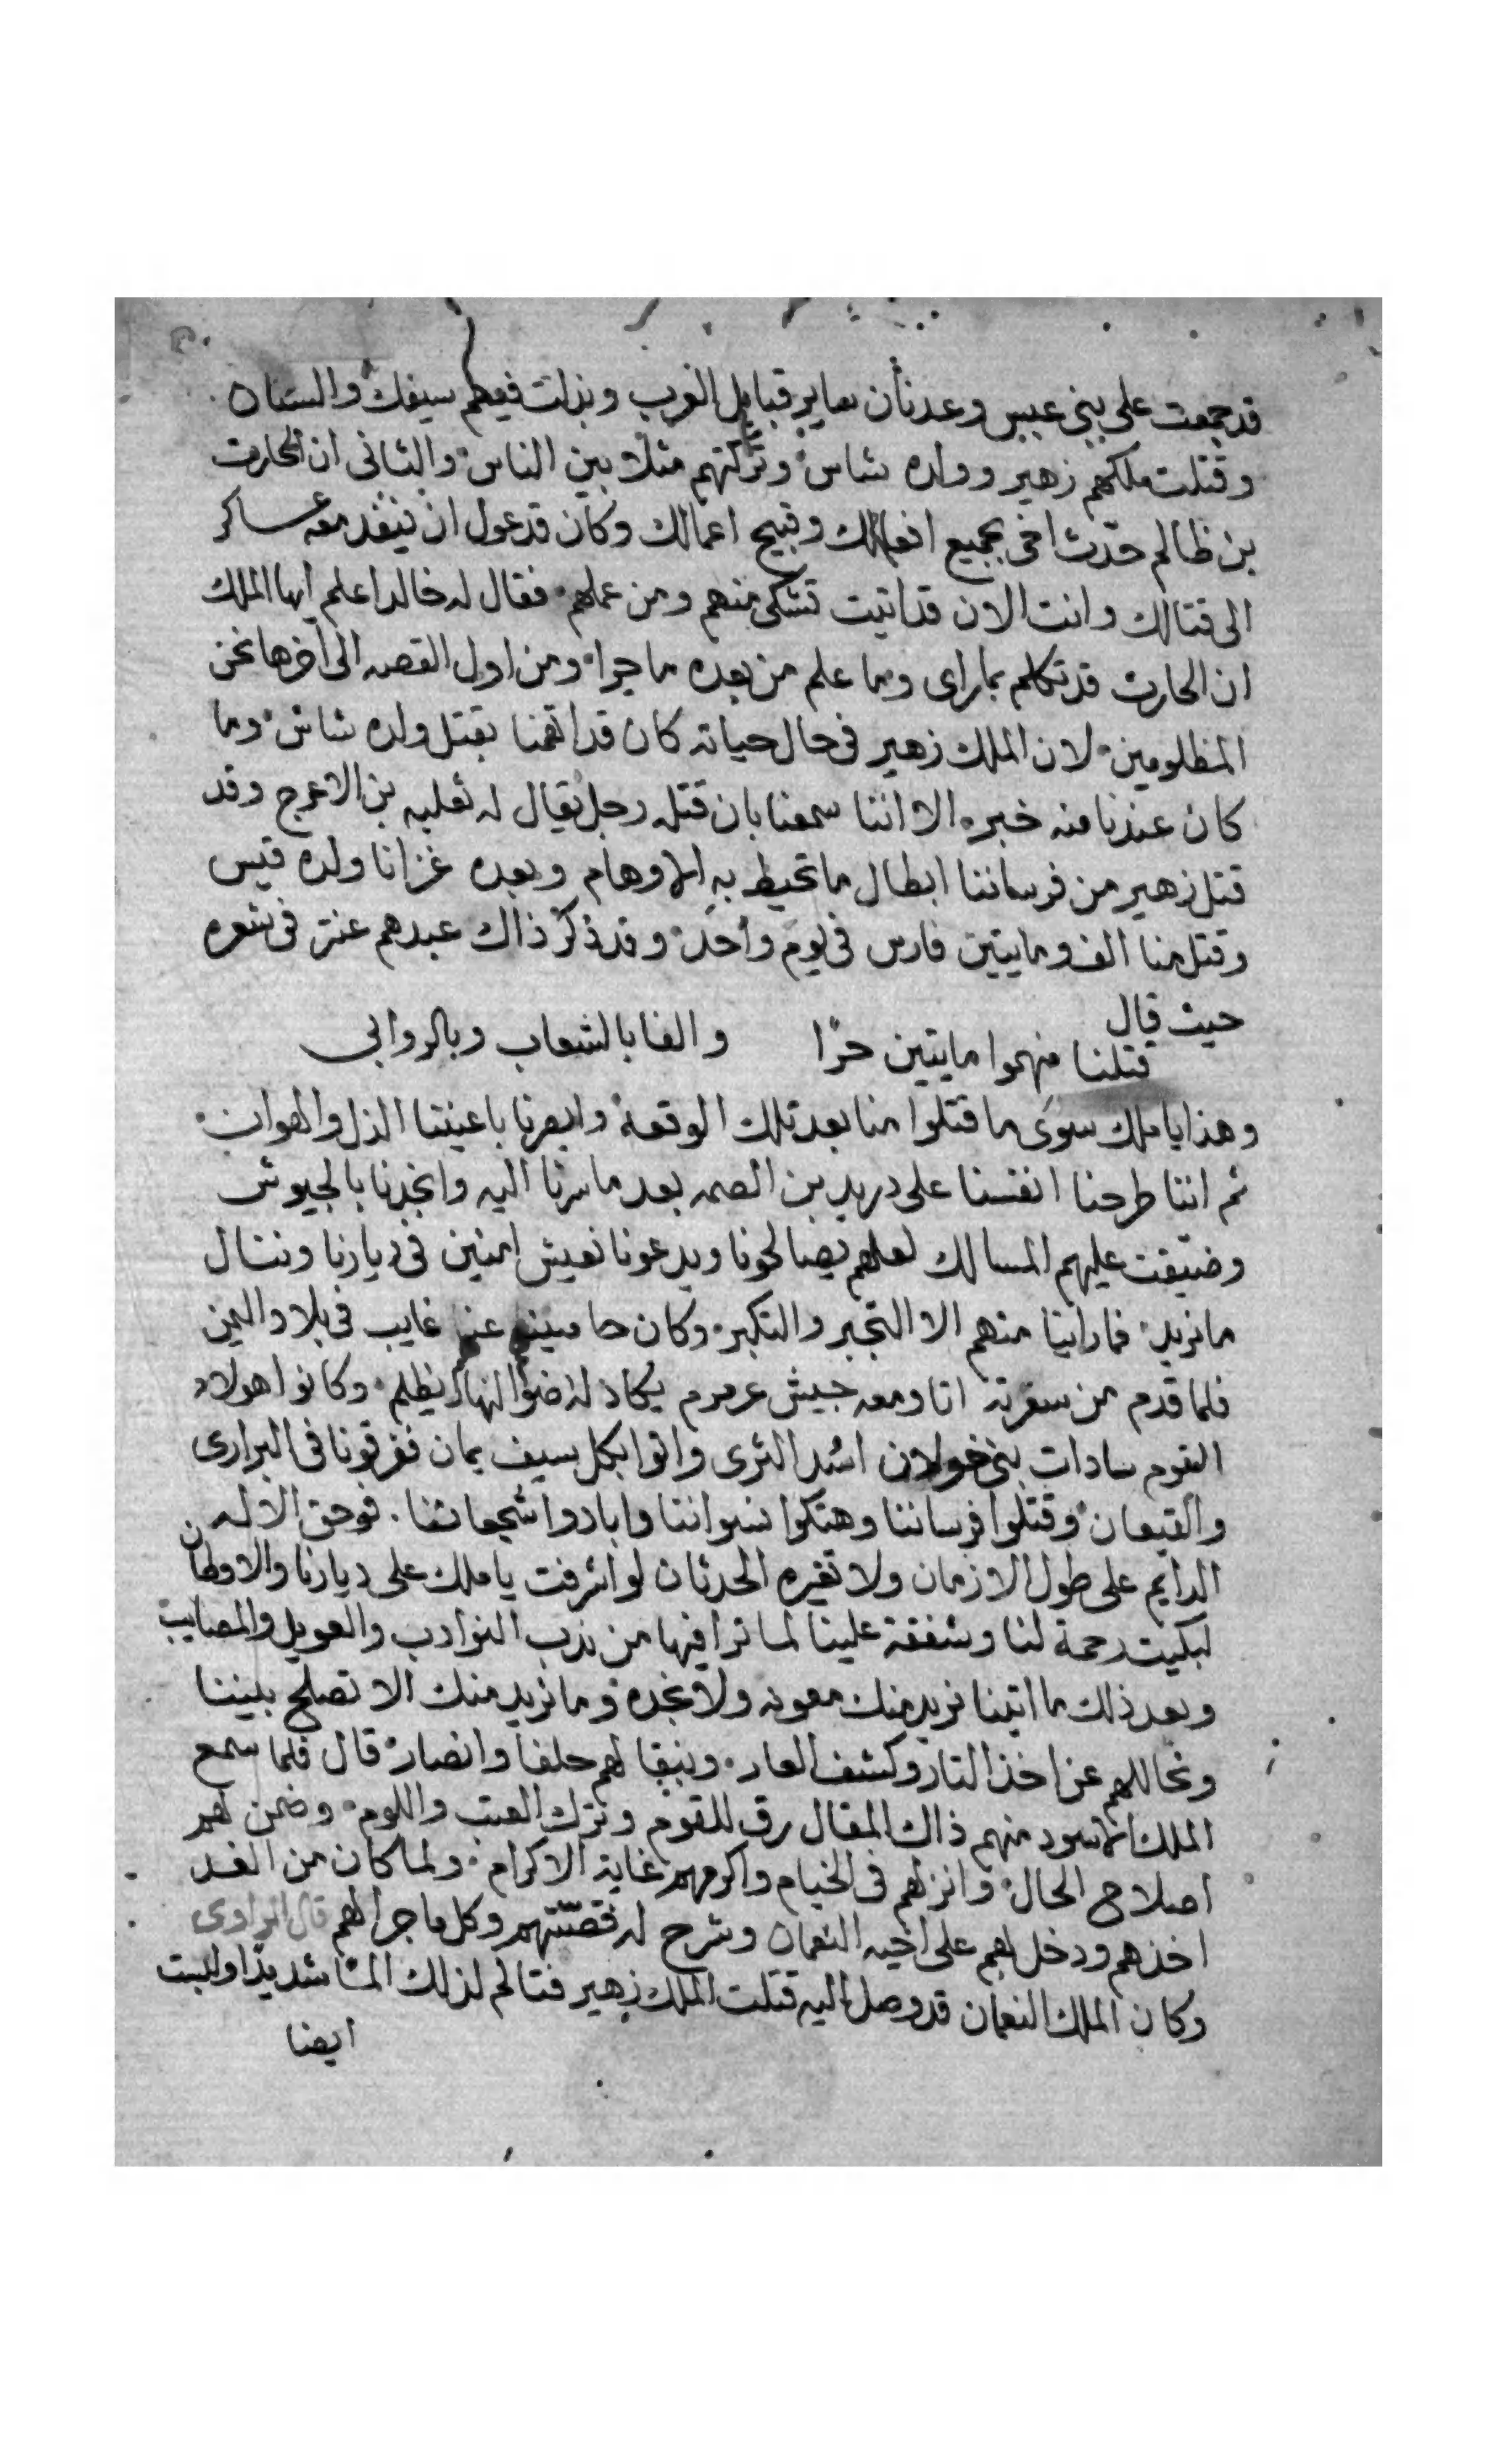 قد جمعت على بني عبس وعدنان ساير قبايل العرب وبذلت فيهم سيفك والسنان
وقتلت ملكهم زهير وولده شاس وتركتهم مثلا بين الناس والثاني ان الحارث
بن ظالم حدّث اخى بجميع افعالك وقبيح اعمالك وكان قد عول ان ينفد معه عساكر
الى قتالك وانت الان قد اتيت تشكى منهم ومن عملهم فقال له خالد اعلم ايها الملك
ان الحارث قد تكلم بما راى وما علم من بعده ما جرا ومن اول القصه الى اخرها نحن
المظلومين لان الملك زهير فى حال حياته كان قد اتهمنا بقتل ولده شاش وما
كان عندنا منه خبره الا اننا سمعنا بان قتله رجل يقال له ثعلبه بن الاعرج وقد
قتل زهير من فرساننا ابطال ما تحيط به الاوهام وبعده غزانا ولده قيس
وقتل منا الف ومايتين فارس فى يوم واحد وقد ذكر ذاك عبدهم عنتر فى شعره
حيث قال
قتلنا منهموا مايتين حرًا والفا بالشعاب وبالروابى
وهذا يا ملك سوى ما قتلوا منا بعد تلك الوقعة وابصرنا باعيننا الذل والهوان
ثم اننا طرحنا انفسنا على دريد بن الصمه بعد ما سرنا اليه وانجدنا بالجيوش
وضيّقت عليهم المسالك لعلهم يصالحونا ويدعونا نعيش امنين فى ديارنا وننال
ما نريد فما راينا منهم الا التجبر والتكبر وكان حاميتهم عنتر غايب فى بلاد اليمن
فلما قدم من سفرته اتا ومعه جيش عرمرم يكاد له ضؤ النهار يظلم وكانوا هولاد
القوم سادات بني خولان اسُد الثرى واتوا بكل سيف يمان ففرقونا فى البرارى
والقيعان وقتلوا فرساننا وهتكوا نسواننا وابادوا شجعاننا فوحق الاله
الدايم على طول الازمان ولا تغيره الحدثان لو اشرفت يا ملك على ديارنا والاوطان
لبكيت رحمة لنا وشفقة علينا لما ترا فيها من ندب النوادب والعويل والمصايب
وبعد ذلك ما اتينا نريد منك معونه ولا نجده وما نريد منك الا تصلح بيننا
ونخاللهم عن اخذ التار وكشف العار ونبقا لهم حلفا وانصار قال فلما سمع
الملك الاسود منهم ذاك المقال رق للقوم وترك العتب واللوم وضمن لهم
اصلاح الحال وانزلهم فى الخيام واكرمهم غاية الاكرام ولما كان من الغد
اخذهم ودخل بهم على اخيه النعمان وشرح له قصّتهم وكل ما جرا لهم قال الراوى
وكان الملك النعمان قد وصل اليه قتلت الملك زهير فتالم لذلك الما شديدا ولبست
ايضا